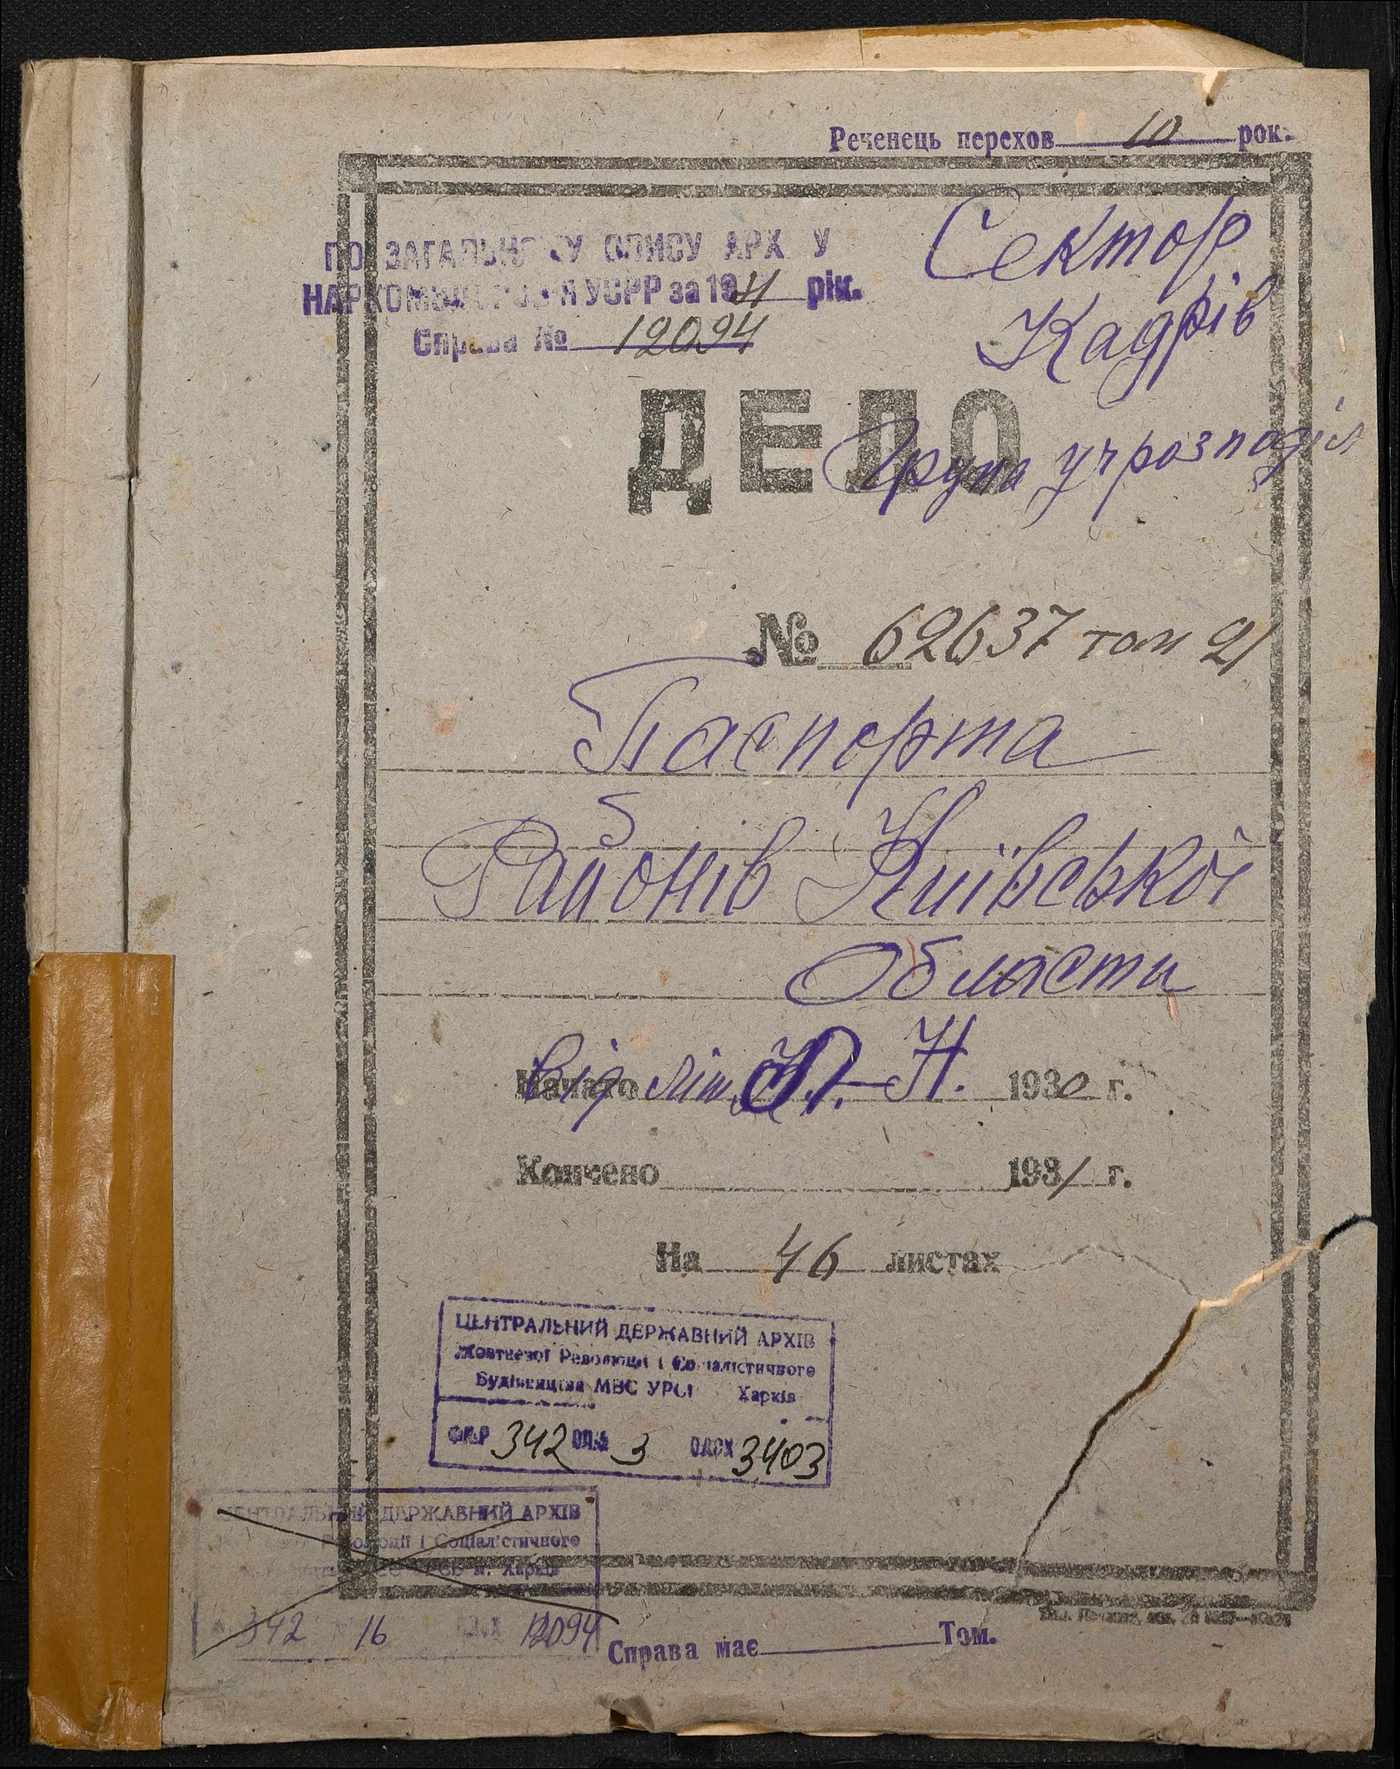 Реченець перехов 10 рок.
ПО ЗАГАЛЬНОМУ ОПИСУ АРХ У
УСРР за 1931 рік.
Справа № 12094
Сектор
Кадрів
ДЕЛО
Група учрозподіл
№ 62637 том 21
Паспорта
Районів Київської
Области
Начато від літ. Н. 1930 г.
Кончено 1931 г.
На 46 листах
ЦЕНТРАЛЬНИЙ ДЕРЖАВНИЙ АРХІВ
Жовтневої Революції і Соціалістичного
Будівництва МВС УРСР Харків
342 3 3403
ЦЕНТРАЛЬНИЙ ДЕРЖАВНИЙ АРХІВ
Революції і Соціалістичного
м. Харків
342 16 12094
Справа має Том.